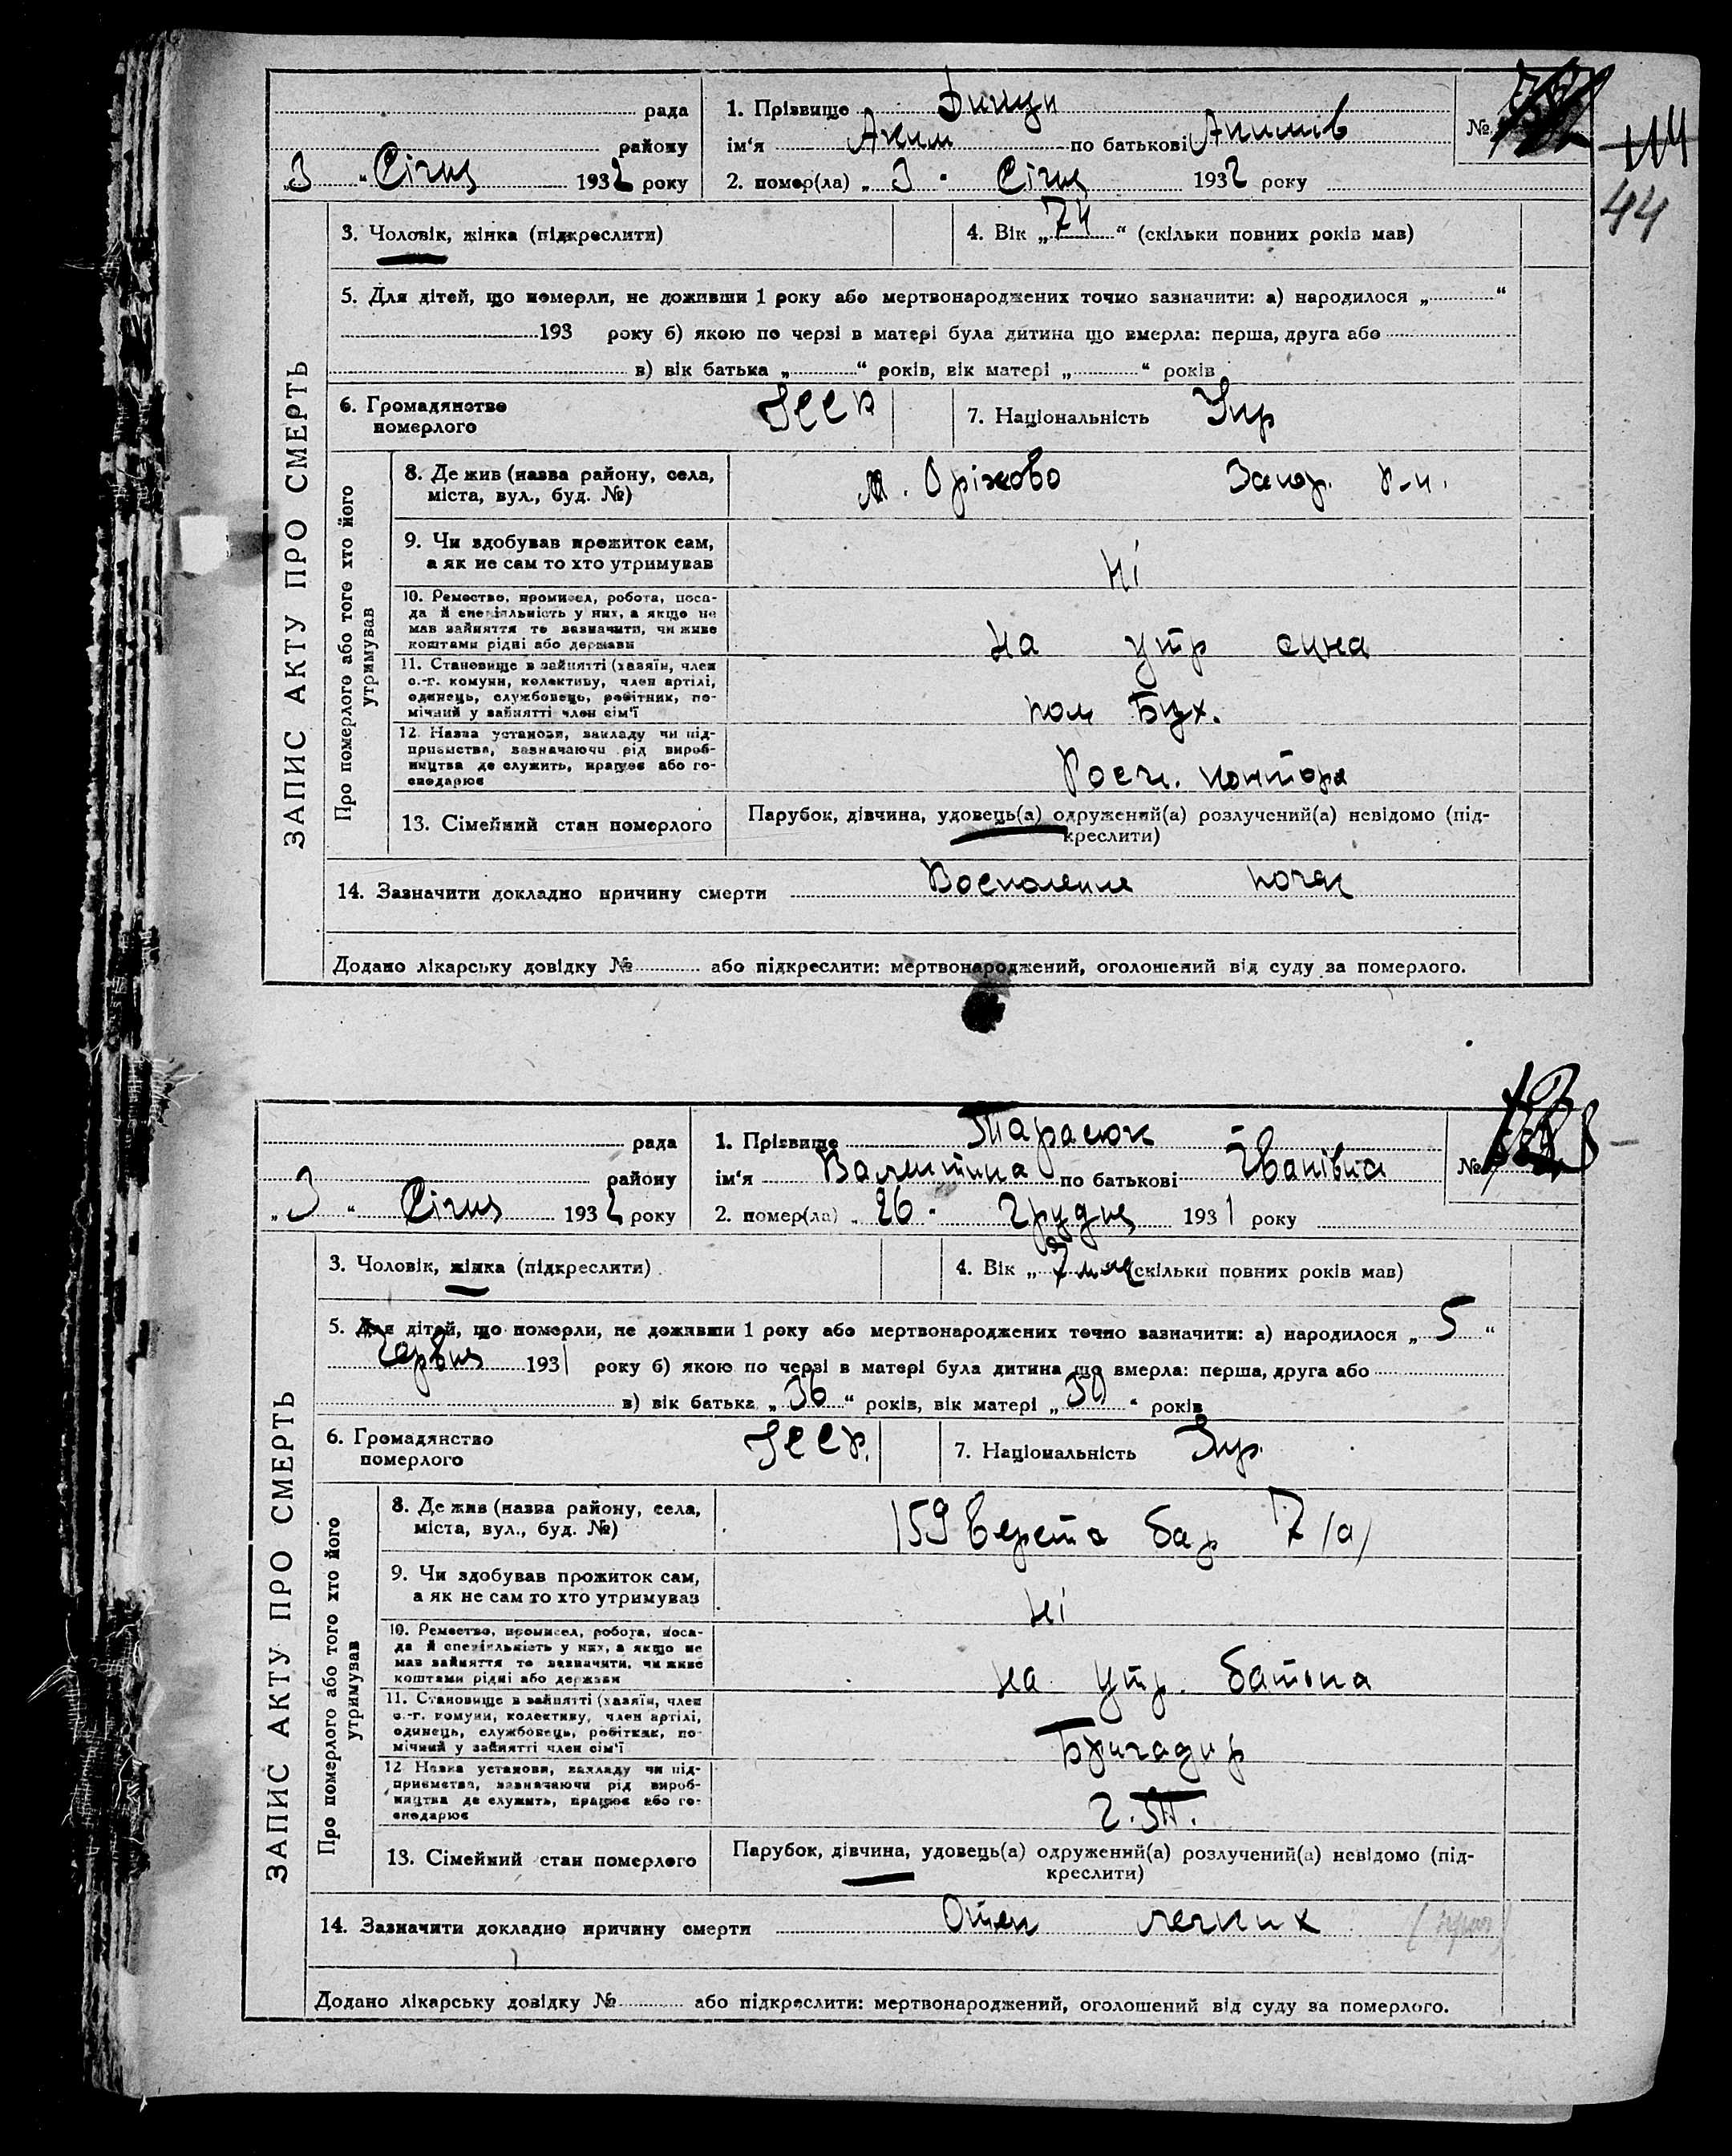 рада
1. Прізвище
№
району
ім'я Аким по батькові Акимів
44
„3“ Січня 1932 року
2. помер(ла) „3“ Січня 1932 року
3. Чоловік, жінка (підкреслити)
4. Вік „74“ (скільки повних років мав)
5. Для дітей, що померли, не доживши 1 року або мертвонароджених точно зазначити: а) народилося „ “
193 року б) якою по черзі в матері була дитина що вмерла: перша, друга або
в) вік батька „ “ років, вік матері „ “ років
6. Громадянство
померлого
УССР
7. Національність Укр
ЗАПИС АКТУ ПРО СМЕРТЬ
Про померлого або того хто його
утримував
8. Де жив (назва району, села,
міста, вул., буд. №)
м. Оріхово Запор. р-н.
9. Чи здобував прожиток сам,
а як не сам то хто утримував
Ні
10. Ремество, промисел, робота, поса-
да й спеціяльність у них, а якщо не
мав зайняття то зазначити, чи живе
коштами рідні або держави
на утр сина
11. Становище в зайнятті (хазяїн, член
с.-г. комуни, колективу, член артілі,
одинець, службовець, робітник, по-
мічний у зайнятті член сім'ї
пом Бух.
12. Назва установи, закладу чи під-
приємства, зазначаючи рід вироб-
ництва де служить, працює або го-
сподарює
контора
13. Сімейний стан померлого
Парубок, дівчина, удовець(а) одружений(а) розлучений(а) невідомо (під-
креслити)
14. Зазначити докладно причину смерти Воспаление почек
Додано лікарську довідку № або підкреслити: мертвонароджений, оголошений від суду за померлого.
рада
1. Прізвище Тарасюк
№
району
ім'я Валентина по батькові Іванівна
„3“ Січня 1932 року
2. помер(ла) „26“ Грудня 1931 року
3. Чоловік, жінка (підкреслити)
4. Вік „7 м“ (скільки повних років мав)
5. Для дітей, що померли, не доживши 1 року або мертвонароджених точно зазначити: а) народилося „5“
Червня 1931 року б) якою по черзі в матері була дитина що вмерла: перша, друга або
в) вік батька „36“ років, вік матері „30“ років
6. Громадянство
померлого
УССР.
7. Національність Укр.
ЗАПИС АКТУ ПРО СМЕРТЬ
Про померлого або того хто його
утримував
8. Де жив (назва району, села,
міста, вул., буд. №)
159 верста бар 7 /а/
9. Чи здобував прожиток сам,
а як не сам то хто утримував
Ні
10. Ремество, промисел, робота, поса-
да й спеціяльність у них, а якщо не
мав зайняття то зазначити, чи живе
коштами рідні або держави
на утр. батька
11. Становище в зайнятті (хазяїн, член
с.-г. комуни, колективу, член артілі,
одинець, службовець, робітник, по-
мічний у зайнятті член сім'ї
Бригадир
12. Назва установи, закладу чи під-
приємства, зазначаючи рід вироб-
ництва де служить, працює або го-
сподарює
13. Сімейний стан померлого
Парубок, дівчина, удовець(а) одружений(а) розлучений(а) невідомо (під-
креслити)
14. Зазначити докладно причину смерти Отек легких
Додано лікарську довідку № або підкреслити: мертвонароджений, оголошений від суду за померлого.